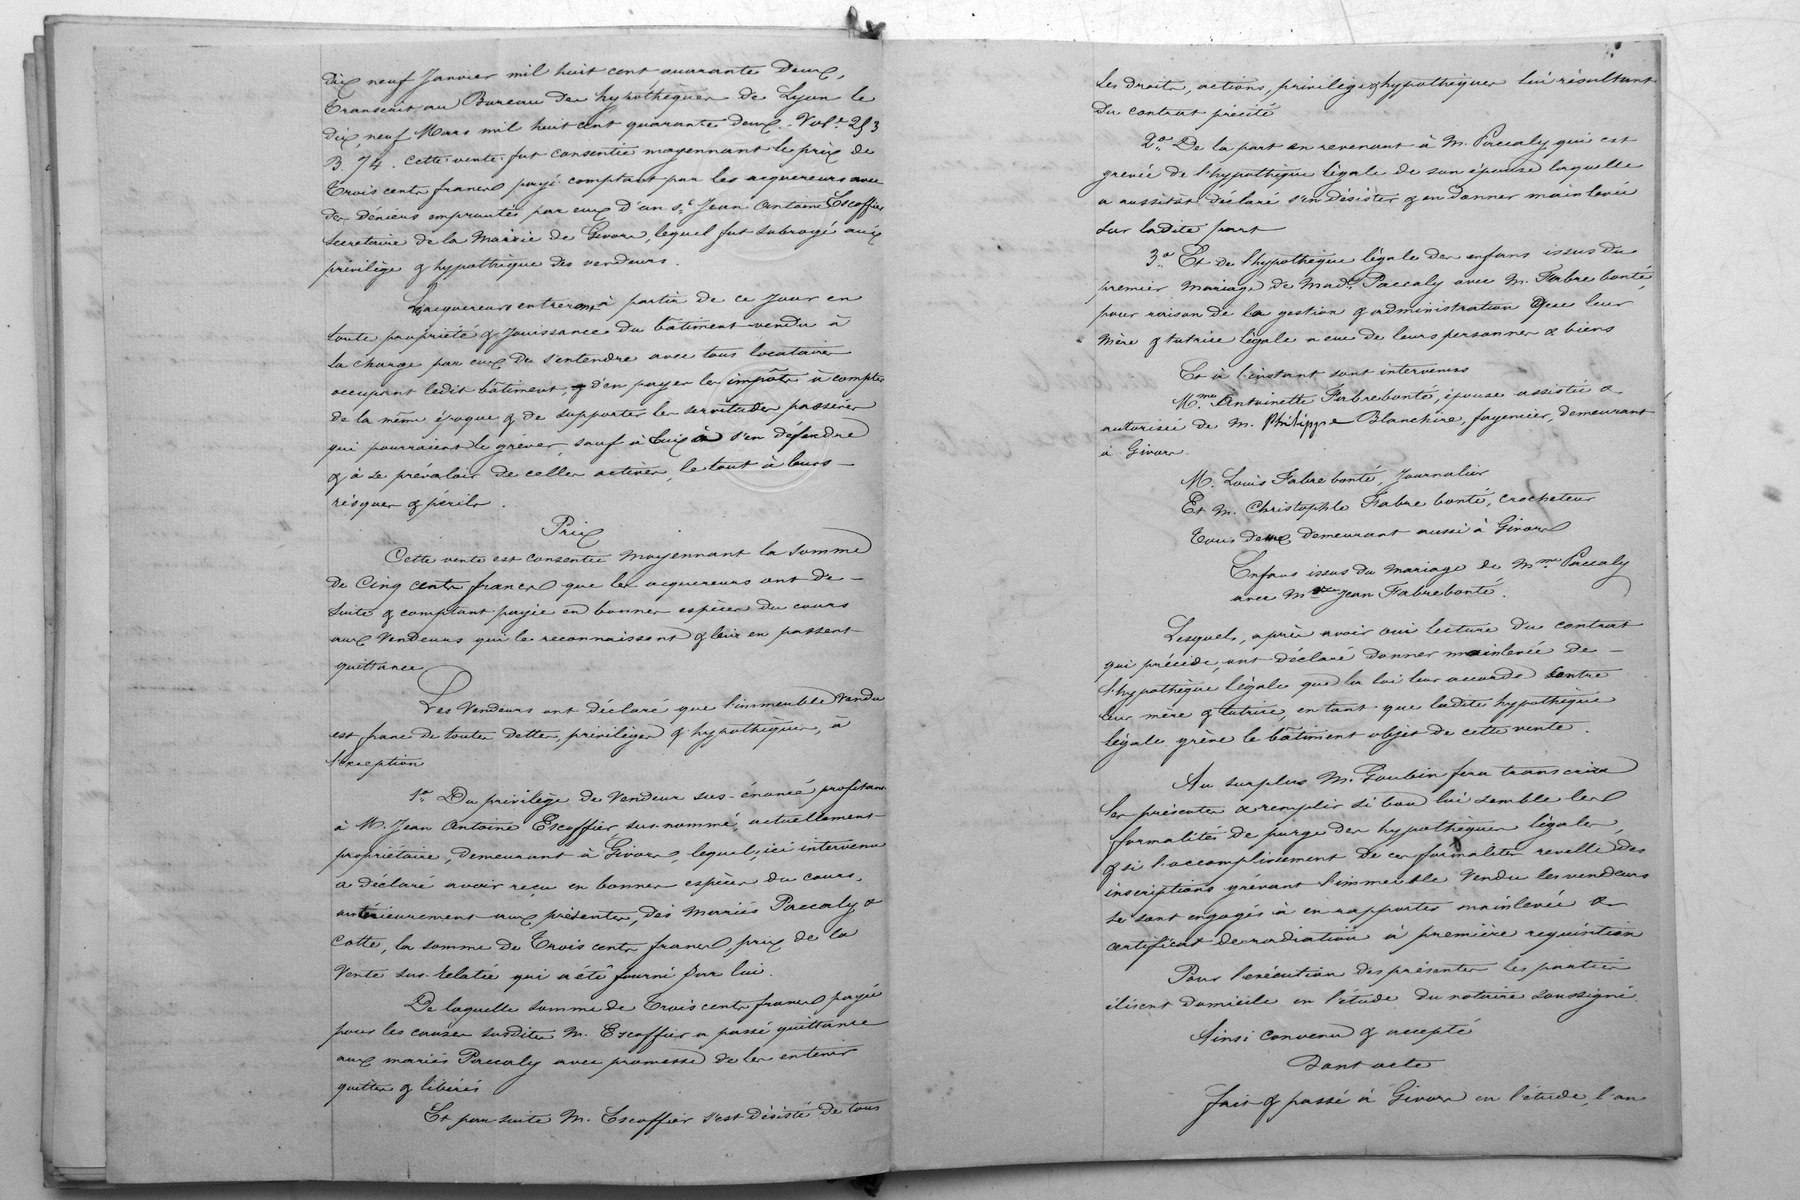 dix neuf Janvier mil huit cent quarante deux,
transcrit au Bureau des hypothèques de Lyon le
dix neuf Mars mil huit cent quarante deux. Vol.e 253
B. 74. Cette vente fut consentie moyennant le prix de
trois cents francs payé comptant par les acquereurs avec
des déniers empruntés par eux d'un s.r Jean Antoine Escoffier
secretaire de la Mairie de Givors, lequel fut subrogé aux
privilège & hypothèque des vendeurs.
acquereurs entreront à partir de ce jour en
toute propriété & jouissance du bâtiment vendu à
la charge par eux de s'entendre avec tous locataires
occupant ledit bâtiment, d'en payer les impôts à compter
de la même époque & de supporter les servitudes passives
qui pourraient le gréver, sauf à eux à s'en défendre
& à se prévaloir de celles actives, le tout à leurs
risques & périls.
Prix
Cette vente est consentie moyennant la somme
de Cinq cents francs que les acquereurs ont de
suite & comptant payée en bonnes espèces du cours
aux vendeurs qui le reconnaissent & leur en passent
quittance
Les Vendeurs ont déclaré que l'immeuble vendu
est franc de toutes dettes, privilèges & hypothèques, à
l'exception
1.o Du privilège de Vendeur sus-énoncé profitant
à M. Jean Antoine Escoffier, sus-nommé, actuellement
propriétaire, demeurant à Givors, lequel, ici intervenu
a déclaré avoir reçu en bonnes espèces du cours,
antérieurement aux présentes, des mariés Paccaly &
Cotte, la somme de Trois cents francs, prix de la
Vente sus-relatée qui a été fourni par lui.
De laquelle somme de Trois cents francs payée
pour les causes susdites M. Escoffier a passé quittance
aux mariés Paccaly avec promesse de les en tenir
quittes & libérés
Et par suite M. Escoffier s'est désisté de tous
les droits, actions, privilège & hypothèques lui résultant
du contrat précité
2.o De la part en revenant à M. Paccaly qui est
grévée de l'hypothèque légale de son épouse laquelle
a aussitôt déclaré s'en désister & en donner mainlevée
sur ladite part
3.o Et de l'hypothèque légale des enfans issus du
premier mariage de Mad.e Paccaly avec M. Fabrebonté,
pour raison de la gestion & administration que leur
mère & tutrice légale a eue de leurs personnes & biens
Et à l'instant sont intervenus
M.me Antoinette Fabrebonté, épouse assistée &
autorisée de M. Philippe Blanchire, fayencier, demeurant
à Givors.
M. Louis Fabrebonté, Journalier
Et M. Christophle Fabrebonté, crocheteur
Tous deux demeurant aussi à Givors
Enfans issus du mariage de M.me Paccaly
avec M. Jean Fabrebonté.
Lesquels, après avoir oui lecture du contrat
qui précède, ont déclaré donner mainlevée de
l'hypothèque légale que la loi leur accorde contre
leur mère & tutrice, en tant que ladite hypothèque
légale grève le bâtiment objet de cette vente.
Au surplus M. Goubin fera transcrire
les présentes & remplir si bon lui semble les
formalités de purge des hypothèques légales,
& si l'accomplissement de ces formalités revelle des
inscriptions grévant l'immeuble vendu les vendeurs
se sont engagés à en rapporter mainlevée &
certificat de radiation à première requisition
Pour l'exécution des présentes les parties
élisent domicile en l'étude du notaire soussigné
Ainsi convenu & accepté
Dont acte
fait & passé à Givors en l'étude, l'an